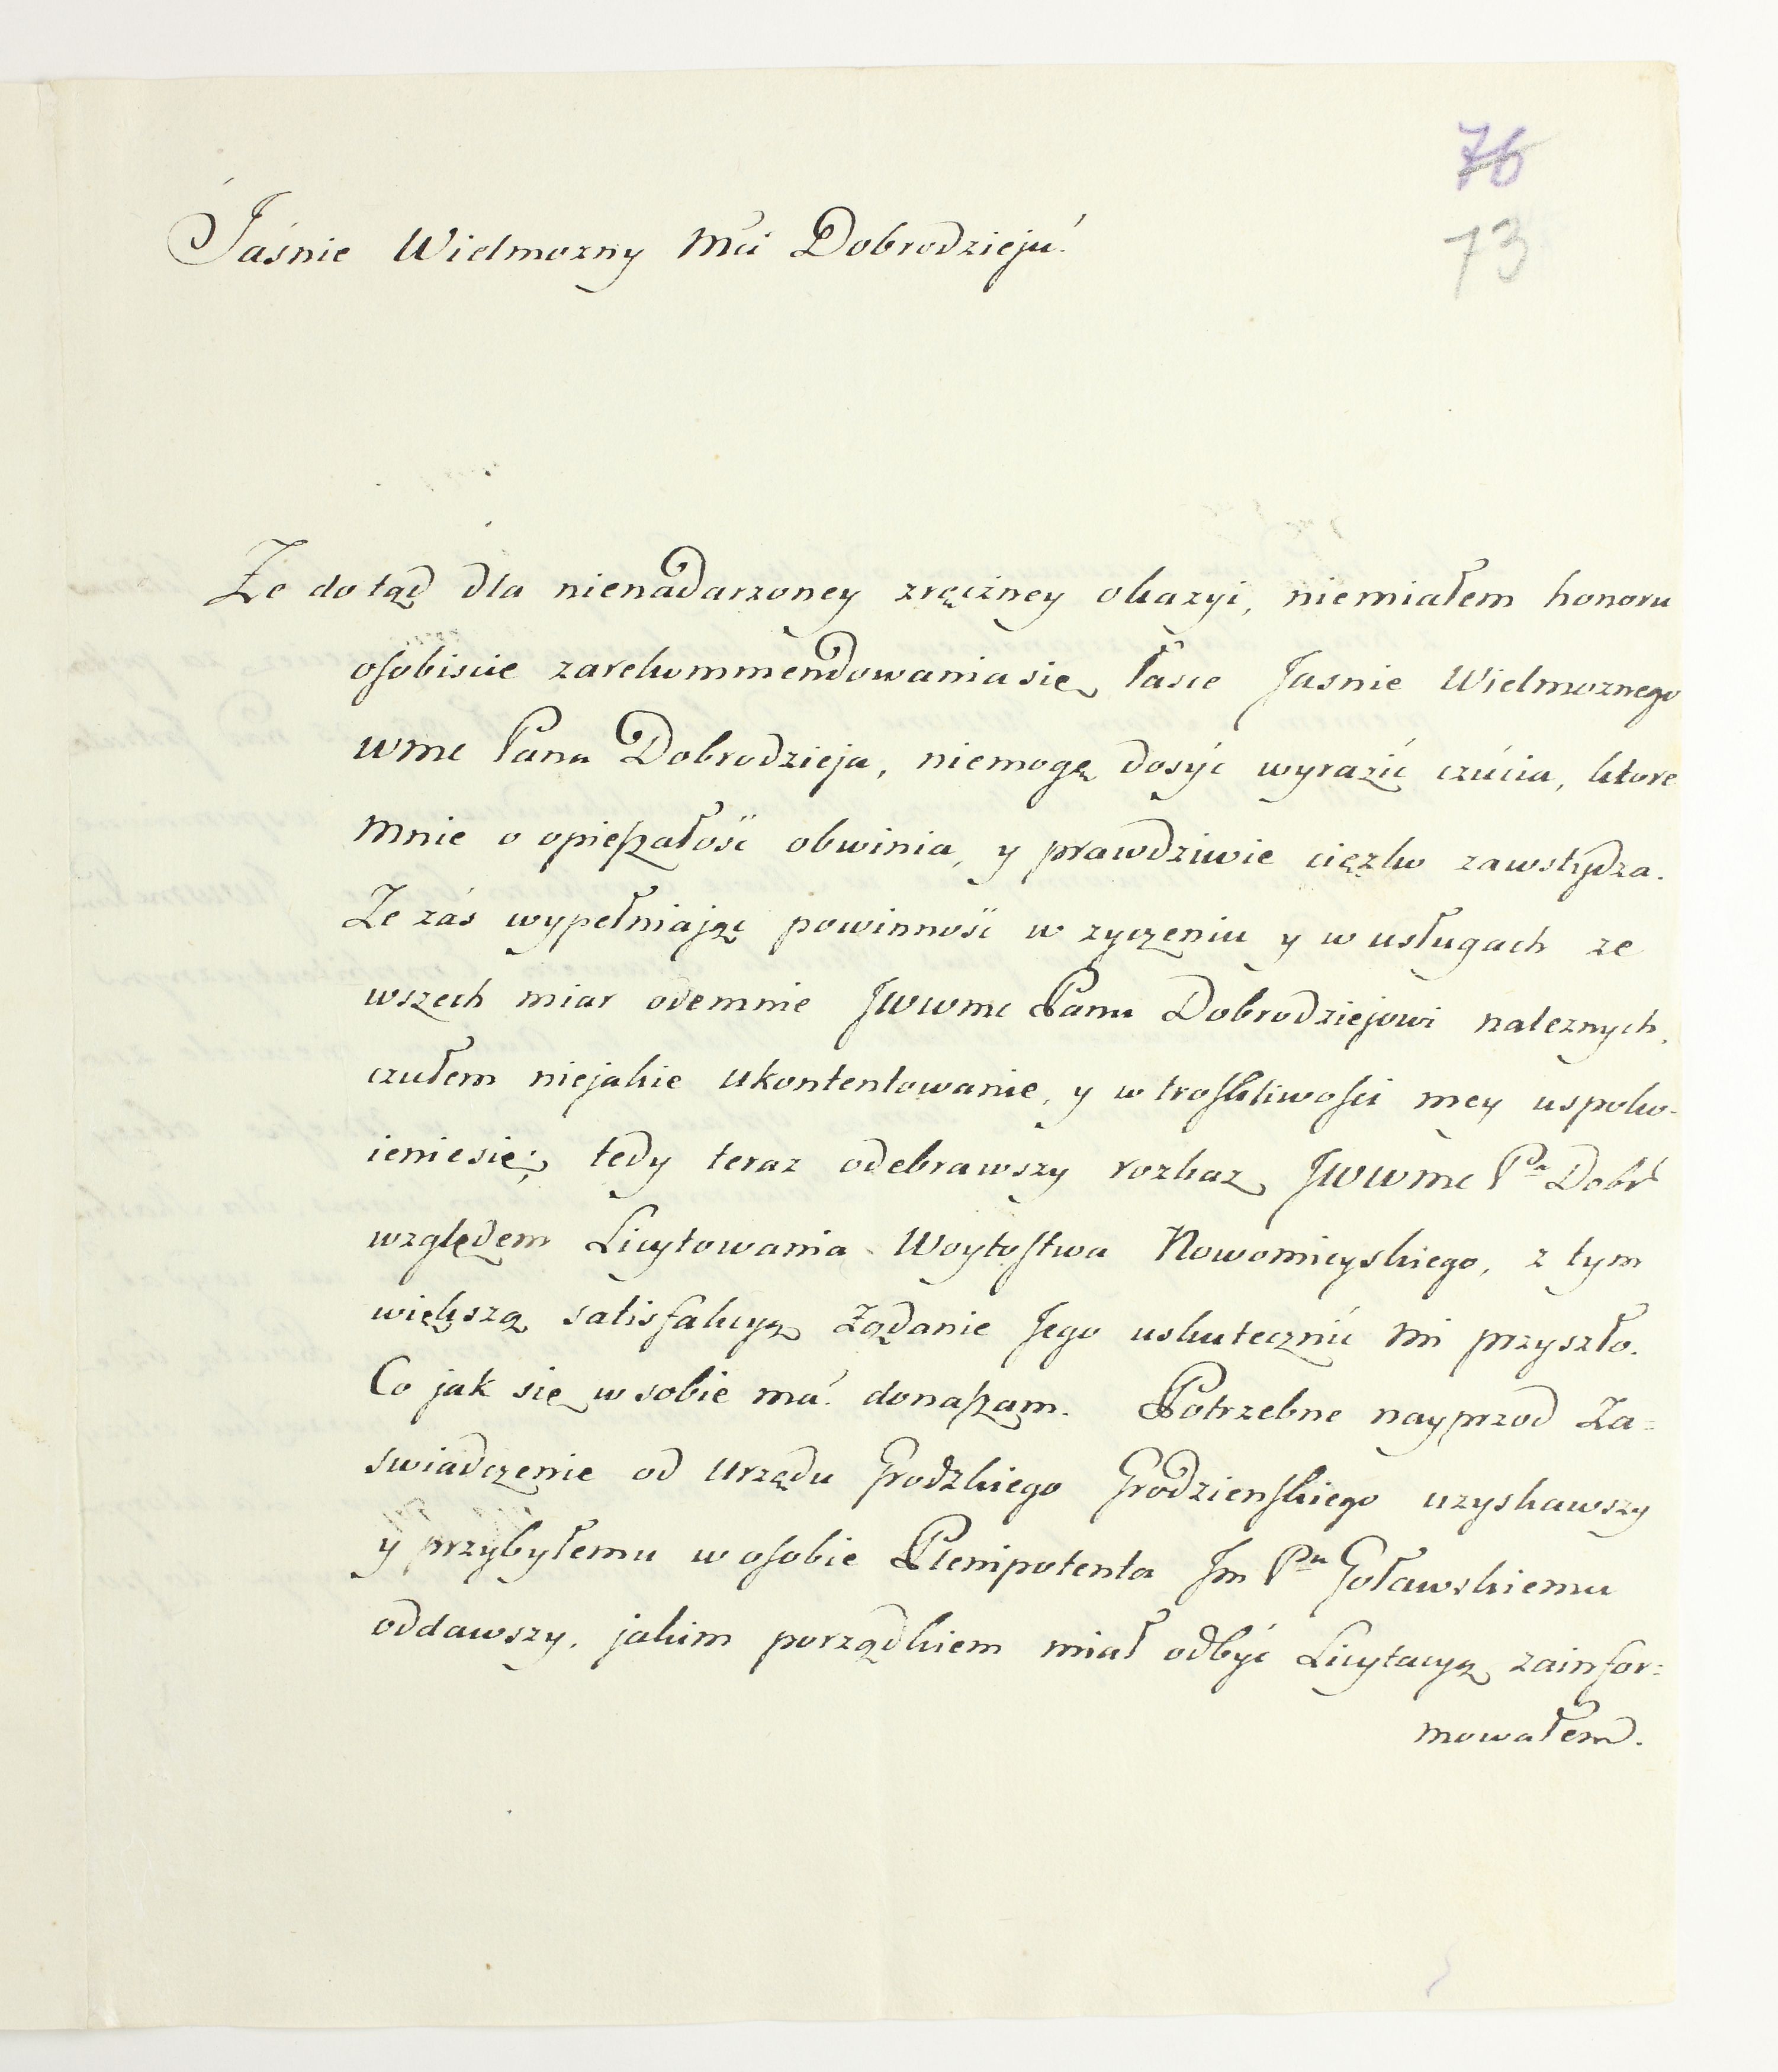 76
73
Jaśnie Wielmozny Mći Dobrodzieju!
Ze do tąd dla nienadarzoney zręczney okazyi, niemiałem honoru
osobiscie zarekommendowania się łasce Jasnie Wielmoznego
wmc Pana Dobrodzieja, niemogę dosyć wyrazić czućia, ktore
mnie o opieszałość obwinia, y prawdziwie cięzko zawstydza.
Ze zás wypełniając powinność w zyczeniu y w usługach ze
wszech miar odemnie JWWmc Panu Dobrodziejowi naleznych,
czułem niejakie ukontentowanie, y w troskliwosci mey uspoko-
ienie się; tedy teraz odebrawszy rozkaz JWWmc Pa Dobr
względem Licytowania Woytostwa Nowomieyskiego, z tym
większą satisfakcyą Ządanie Jego uskutecznić mi przyszło.
Co jak się w sobie má donaszam. Potrzebne nayprzod Za=
swiadczenie od Urzędu Grodzkiego Grodzienskiego uzyskawszy
y przybyłemu w osobie Plenipotenta Jm Pu Goławskiemu
oddawszy, jakim porządkiem miał odbyć Licytacyą zainfor=
mowałem.